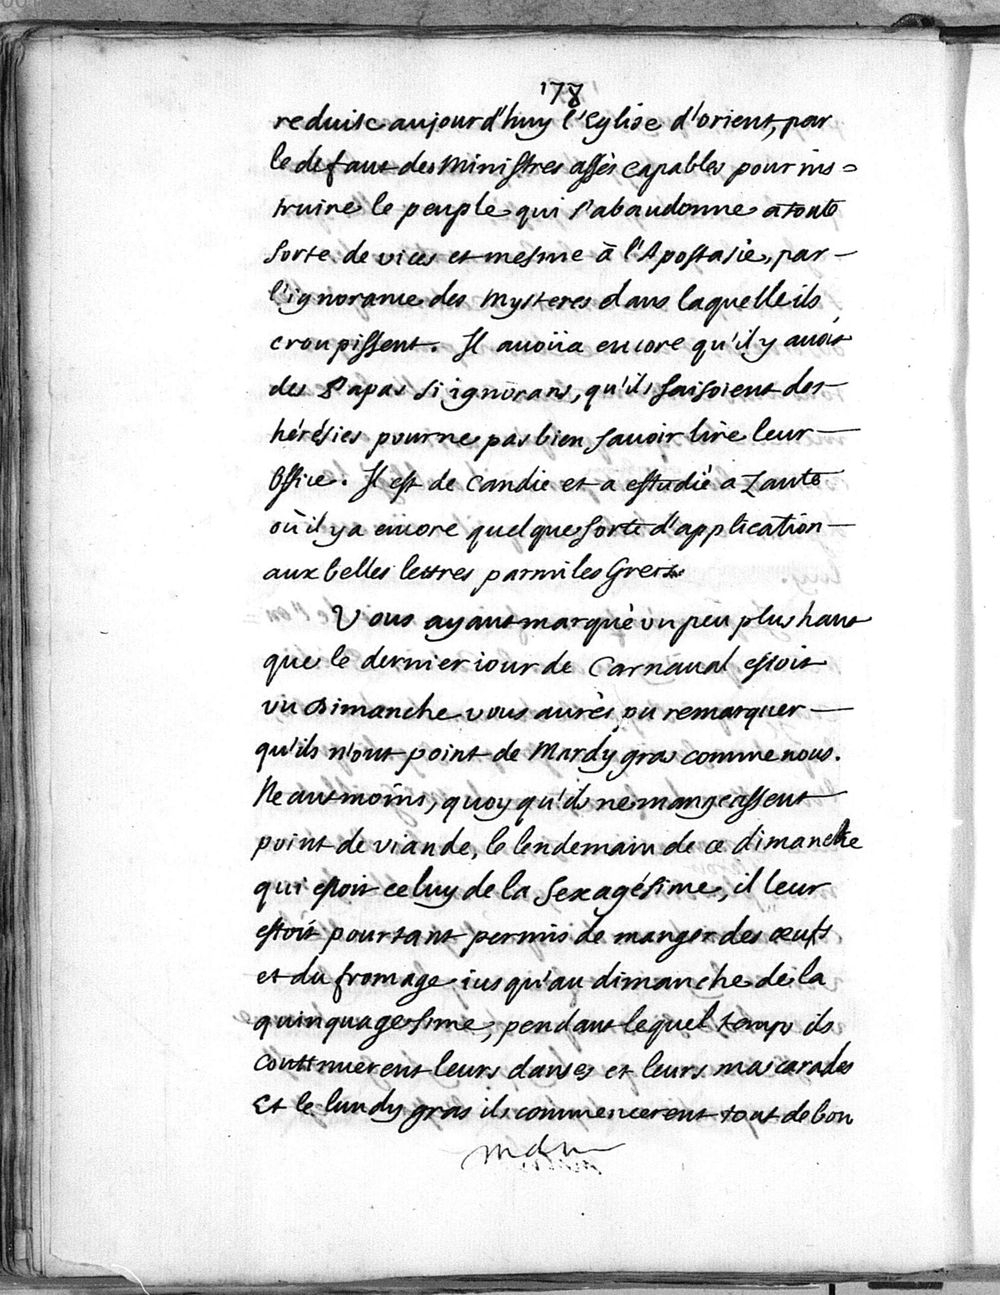 178
reduise aujourd'huy l'Eglise d'orient, par
le defaut des Ministres assés capables pour ins=
truire le peuple qui s'abandonne a toute
sorte de vices et mesme à l'Apostasie, par
l'ignorance des Mysteres dans laquelle ils
croupissent. Il auoüa encore qu'il y auoit
des Papas si ignorans, qu'ils faisoient des
hérésies pour ne pas bien sauoir lire leur
Office. Il est de Candie et a estudié a Zante
où il y a encore quelque sorte d'application
aux belles lettres parmi les Grecs.
Vous ayant marqué un peu plus haut
que le dernier iour de Carnaual estoit
un Dimanche vous aurés pu remarquer
qu'ils n'ont point de Mardy gras comme nous.
Neantmoins, quoy qu'ils ne mangeassent
point de viande, le lendemain de ce dimanche
qui estoit celuy de la Sexagésime, il leur
estoit pourtant permis de manger des œufs
et du fromage iusqu'au dimanche de la
quinquagesime, pendant lequel temps ils
continuerent leurs danses et leurs mascarades
Et le lundy gras ils commencerent tout de bon